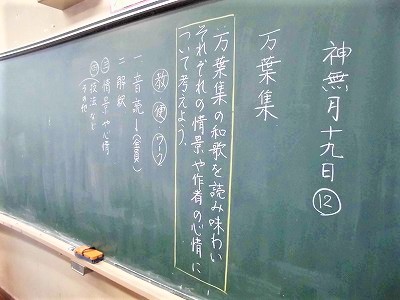 神無月十九日⑫
万葉集
万葉集の和歌を読み味わい
それぞれの情景や作者の心情に
ついて考えよう。
教 便 ワク
一 音読↓(全員)
二 解釈
情景や心情
技法など